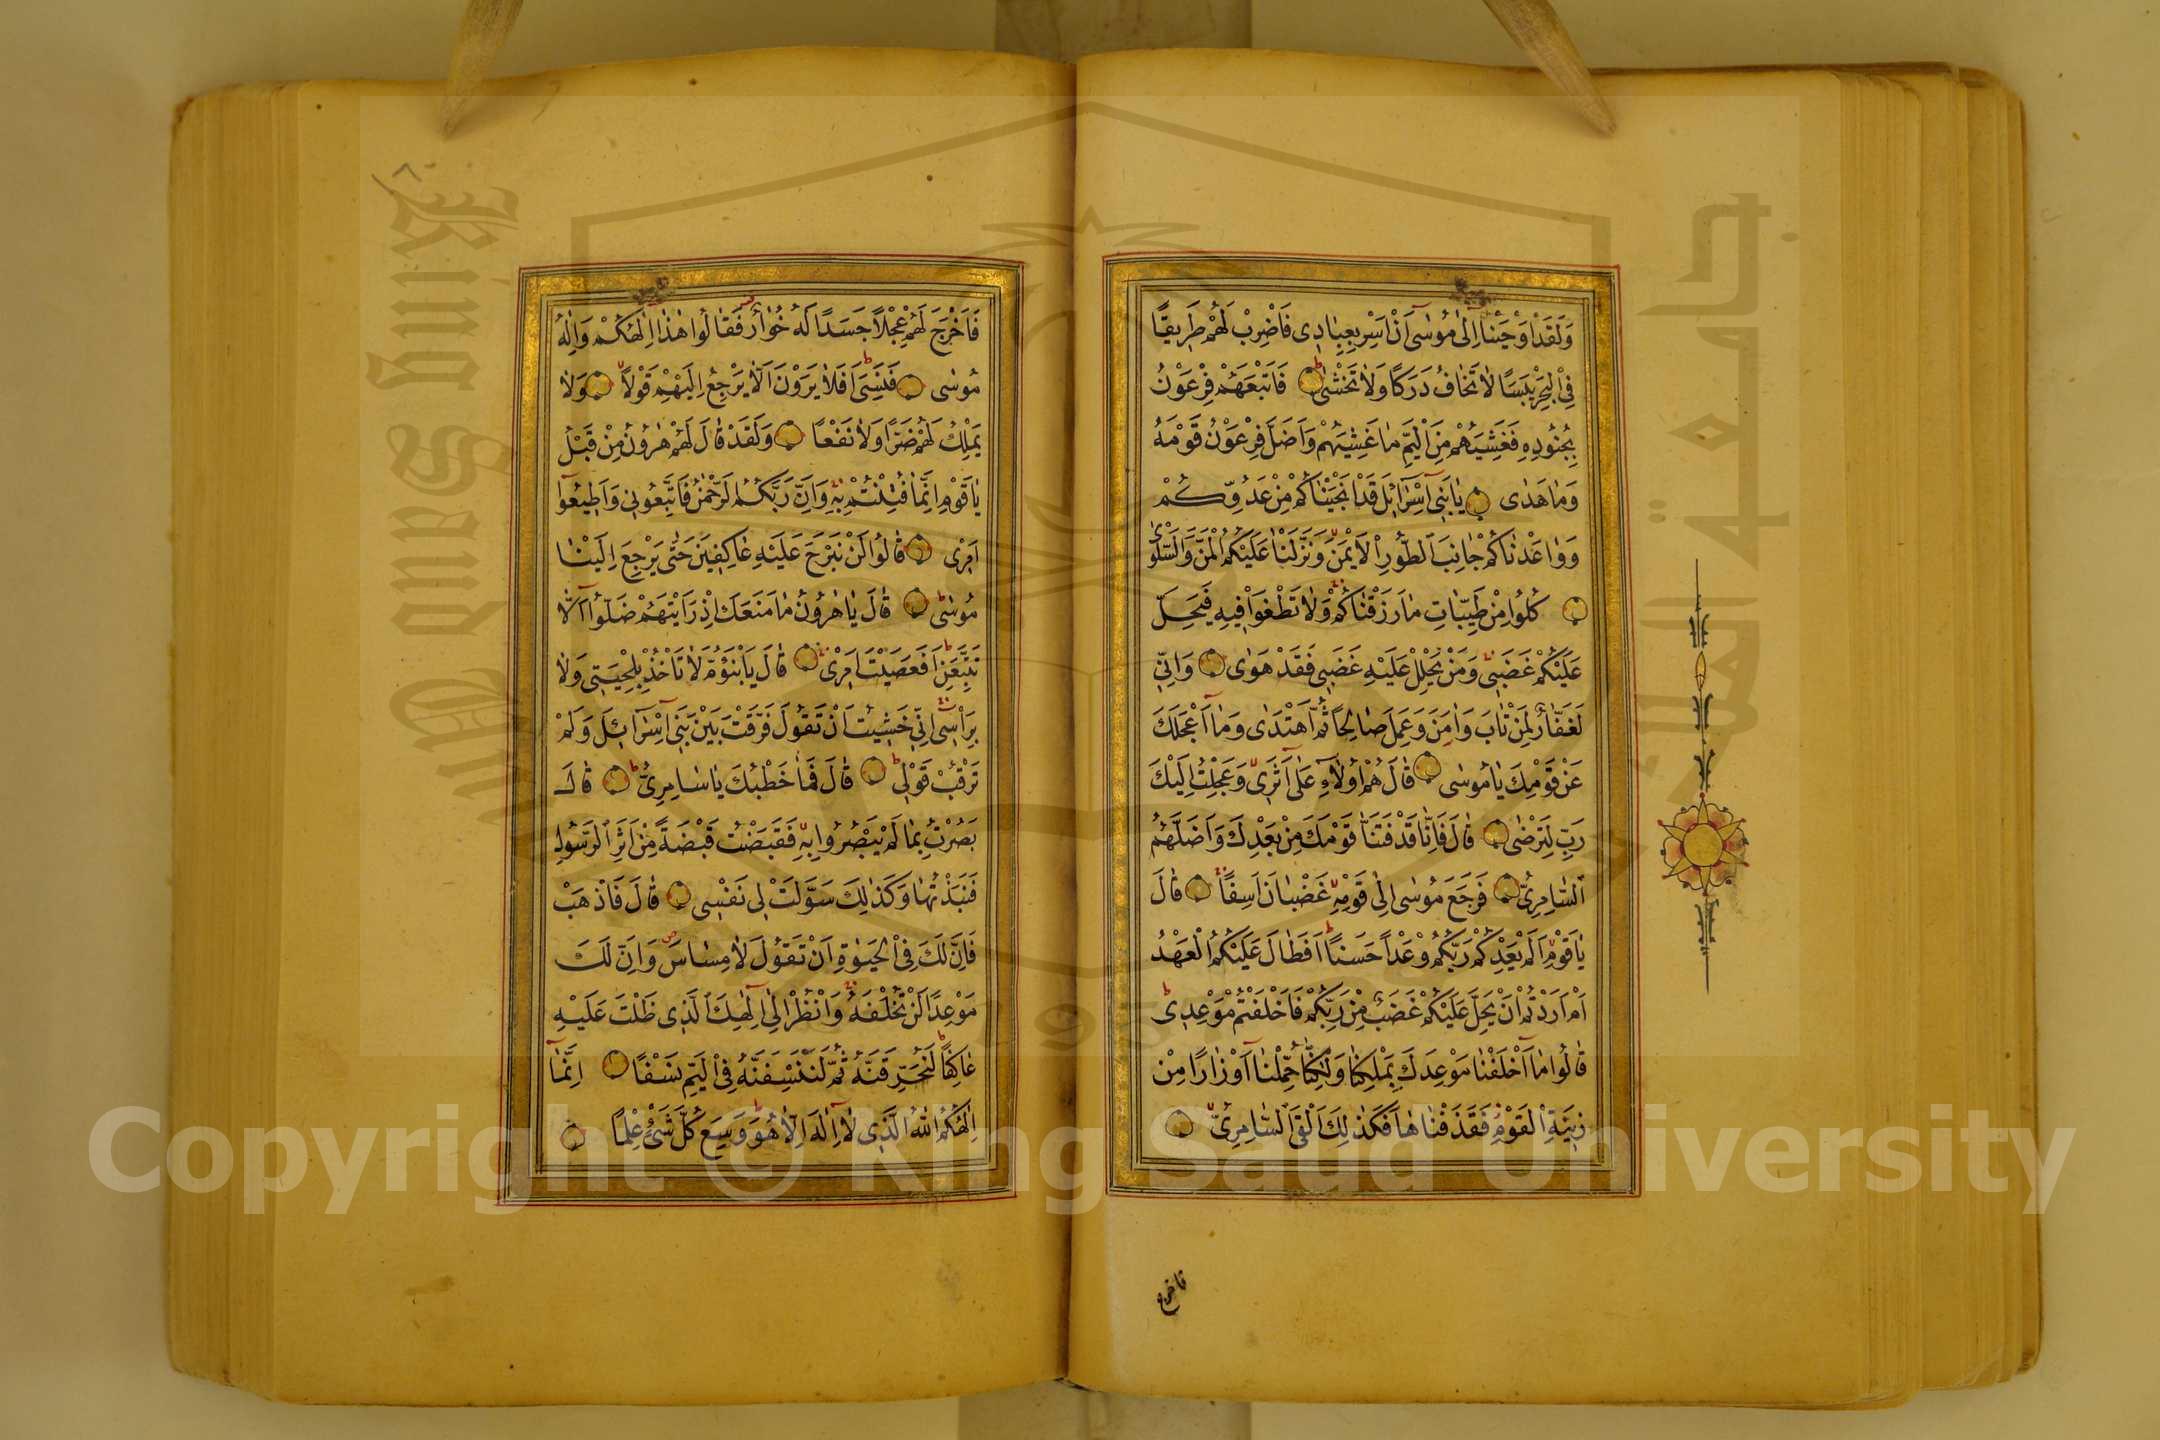 وَلَقَدْ اَوْحَيْنَا اِلٰى مُوسٰى اَنْ اَسْرِ بِعِبَادِى فَاضْرِبْ لَهُمْ طَرِيقًا
فِى الْبَحْرِ يَبَسًا لَا تَخَافُ دَرَكًا وَلَا تَخْشٰى فَاَتْبَعَهُمْ فِرْعَوْنُ
بِجُنُودِهِ فَغَشِيَهُمْ مِنَ الْيَمِّ مَا غَشِيَهُمْ وَاَضَلَّ فِرْعَوْنُ قَوْمَهُ
وَمَا هَدٰى يَا بَنِى اِسْرَائِلَ قَدْ اَنْجَيْنَاكُمْ مِنْ عَدُوِّكُمْ
وَوَاعَدْنَاكُمْ جَانِبَ الطُّورِ الْاَيْمَنَ وَنَزَّلْنَا عَلَيْكُمُ الْمَنَّ وَالسَّلْوٰى
كُلُوا مِنْ طَيِّبَاتِ مَا رَزَقْنَاكُمْ وَلَا تَطْغَوْا فِيهِ فَيَحِلَّ
عَلَيْكُمْ غَضَبِى وَمَنْ يَحْلِلْ عَلَيْهِ غَضَبِى فَقَدْ هَوٰى وَاِنِّى
لَغَفَّارٌ لِمَنْ تَابَ وَاٰمَنَ وَعَمِلَ صَالِحًا ثُمَّ اهْتَدٰى وَمَا اَعْجَلَكَ
عَنْ قَوْمِكَ يَا مُوسٰى قَالَ هُمْ اُولَاءِ عَلٰى اَثَرِى وَعَجِلْتُ اِلَيْكَ
رَبِّ لِتَرْضٰى قَالَ فَاِنَّا قَدْ فَتَنَّا قَوْمَكَ مِنْ بَعْدِكَ وَاَضَلَّهُمُ
السَّامِرِىُّ فَرَجَعَ مُوسٰى اِلٰى قَوْمِهِ غَضْبَانَ اَسِفًا قَالَ
يَا قَوْمِ اَلَمْ يَعِدْكُمْ رَبُّكُمْ وَعْدًا حَسَنًا اَفَطَالَ عَلَيْكُمُ الْعَهْدُ
اَمْ اَرَدْتُمْ اَنْ يَحِلَّ عَلَيْكُمْ غَضَبٌ مِنْ رَبِّكُمْ فَاَخْلَفْتُمْ مَوْعِدِى
قَالُوا مَا اَخْلَفْنَا مَوْعِدَكَ بِمَلْكِنَا وَلٰكِنَّا حُمِّلْنَا اَوْزَارًا مِنْ
زِينَةِ الْقَوْمِ فَقَذَفْنَاهَا فَكَذٰلِكَ اَلْقَى السَّامِرِىُّ
فَاَخْرَجَ لَهُمْ عِجْلًا جَسَدًا لَهُ خُوَارٌ فَقَالُوا هٰذَا اِلٰهُكُمْ وَاِلٰهُ
مُوسٰى فَنَسِىَ اَفَلَا يَرَوْنَ اَلَّا يَرْجِعُ اِلَيْهِمْ قَوْلًا وَلَا
يَمْلِكُ لَهُمْ ضَرًّا وَلَا نَفْعًا وَلَقَدْ قَالَ لَهُمْ هٰرُونُ مِنْ قَبْلُ
يَا قَوْمِ اِنَّمَا فُتِنْتُمْ بِهِ وَاِنَّ رَبَّكُمُ الرَّحْمٰنُ فَاتَّبِعُونِى وَاَطِيعُوا
اَمْرِى قَالُوا لَنْ نَبْرَحَ عَلَيْهِ عَاكِفِينَ حَتّٰى يَرْجِعَ اِلَيْنَا
مُوسٰى قَالَ يَا هٰرُونُ مَا مَنَعَكَ اِذْ رَاَيْتَهُمْ ضَلُّوا اَلَّا
تَتَّبِعَنِ اَفَعَصَيْتَ اَمْرِى قَالَ يَا ابْنَؤُمَّ لَا تَاْخُذْ بِلِحْيَتِى وَلَا
بِرَاْسِى اِنِّى خَشِيتُ اَنْ تَقُولَ فَرَّقْتَ بَيْنَ بَنِى اِسْرَائِلَ وَلَمْ
تَرْقُبْ قَوْلِى قَالَ فَمَا خَطْبُكَ يَا سَامِرِىُّ قَالَ
بَصُرْتُ بِمَا لَمْ يَبْصُرُوا بِهِ فَقَبَضْتُ قَبْضَةً مِنْ اَثَرِ الرَّسُولِ
فَنَبَذْتُهَا وَكَذٰلِكَ سَوَّلَتْ لِى نَفْسِى قَالَ فَاذْهَبْ
فَاِنَّ لَكَ فِى الْحَيٰوةِ اَنْ تَقُولَ لَا مِسَاسَ وَاِنَّ لَكَ
مَوْعِدًا لَنْ تُخْلَفَهُ وَانْظُرْ اِلٰى اِلٰهِكَ الَّذِى ظَلْتَ عَلَيْهِ
عَاكِفًا لَنُحَرِّقَنَّهُ ثُمَّ لَنَنْسِفَنَّهُ فِى الْيَمِّ نَسْفًا اِنَّمَا
اِلٰهُكُمُ اللّٰهُ الَّذِى لَا اِلٰهَ اِلَّا هُوَ وَسِعَ كُلَّ شَىْءٍ عِلْمًا
فاخرج
King Saud University
جامعة الملك سعود
1957
Copyright © King Saud University